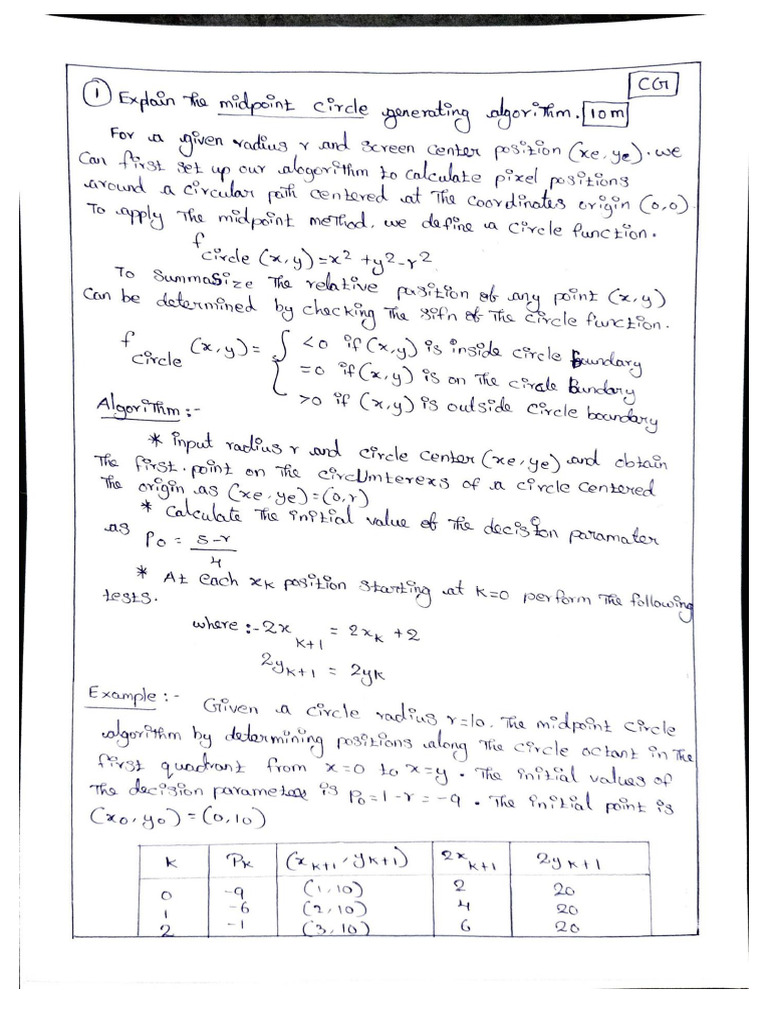 CG
① Explain the midpoint circle generating algorithm. 10m
For a given radius r and screen center position (xe, ye). we
Can first set up our alogorithm to calculate pixel positions
around a circular path centered at the coordinates origin (0,0).
To apply the midpoint method, we define a circle function.
f circle (x,y) = x² + y² - r²
To summasize the relative position of any point (x,y)
Can be determined by checking the sifn of the circle function.
f circle (x,y) = { <0 if (x,y) is inside circle boundary
=0 if (x,y) is on the circle bundary
>0 if (x,y) is outside circle boundary
Algorithm:-
* input radius r and circle center (xe, ye) and obtain
the first point on the circumterexs of a circle centered
the origin as (xe, ye) = (0, r)
* Calculate the initial value of the decision paramater
as P₀ = 5-r / 4
* At each xk position starting at k=0 perform the following
tests.
where :- 2x k+1 = 2xk + 2
2yk+1 = 2yk
Example :- Given a circle radius r=10. The midpoint circle
algorithm by determining positions along the circle octant in the
first quadrant from x=0 to x=y. The initial values of
the decision parameter is P₀ = 1-r = -9. The initial point is
(x₀, y₀) = (0, 10)
K Pk (xk+1, yk+1) 2x k+1 2yk+1
0 -9 (1, 10) 2 20
1 -6 (2, 10) 4 20
2 -1 (3, 10) 6 20